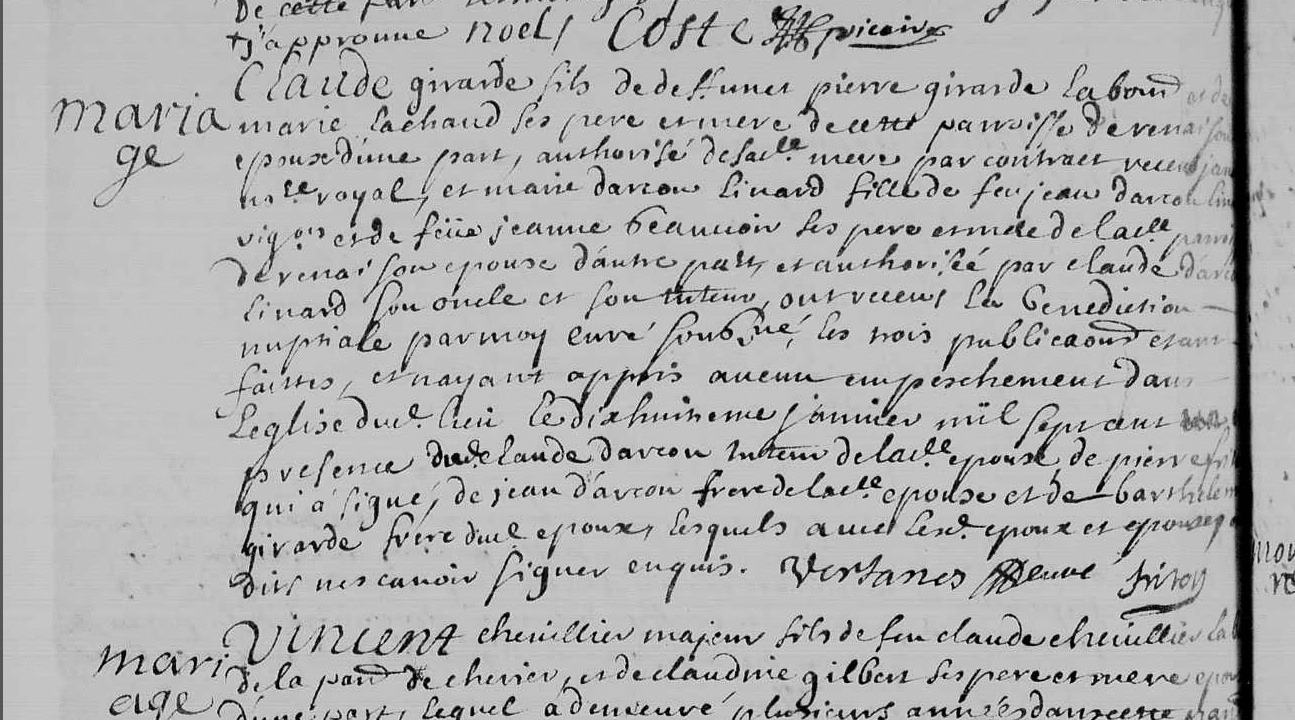 De cette
+ j'approuve noels Coste vicaire
Claude girarde fils de deffunct pierre girarde Labour et de
maria
marie Lachaud ses pere et mere de cette parroisse de renaison
ge
epoux d'une part, authorisé de sad.lle mere par contract receu
no.re royal, et marie darcon Linard fille de feu jean darcon Lin
vig.on et de feüe jeanne beaucoir ses pere et mere de lad.lle parroi
de renaison epouse d'autre part, et authorisée par claude darco
Linard son oncle et son tuteur, ont receus La benediction
nuptiale par moy curé soubsigné, les trois publicaons etant
faittes, et n'ayant appris aucun empeschement dans
L'eglise dud. lieu le dixhuitieme janvier mil sept cent
presence dud. claude darcon tuteur de lad.lle epouse, de pierre
qui a signé, de jean darcon frere de lad.te epouse et de barthelem
girarde frere dud. epoux, lesquels avec lesd. epoux et epouse
dits ne scavoir signer enquis. Vertanes curé
Vincent chevillier majeur fils de feu claude chevillier Lab
mari
de la parr. de cherier, et de claudine gilbert ses pere et mere epou
age
d'une part, lequel a demeuré plusieurs années dans cette
mor